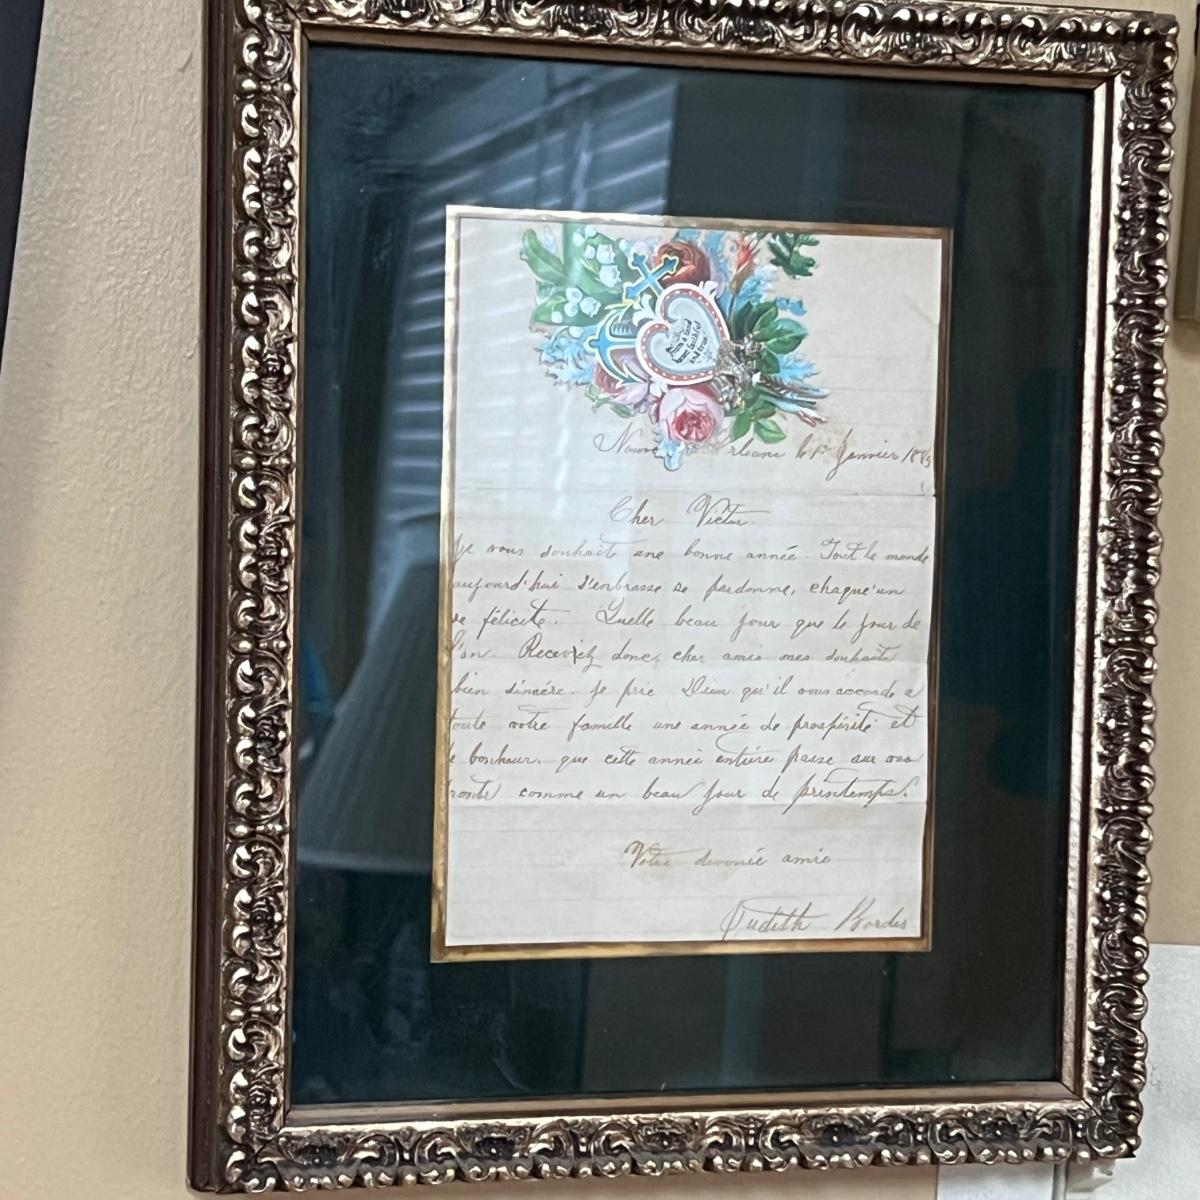 from a fond
heart faithful
and true
Nouve rleans le 1er Janvier 188
Cher Victor
Je vous souhaite une bonne année. Tout le monde
aujourd'hui s'enbrasse se pardonne, chaque'un
se félicite. Quelle beau jour que le jour de
l'an. Recevez donc, cher amie mes souhaits
bien sincére. Je prie Dieu qu'il vous accorde a
toute votre famille une année de prospérité et
e bonheur. que cette année entiére passe sur vos
ronts comme un beau jour de printemps.
Votre devouée amie
Judith Bordes